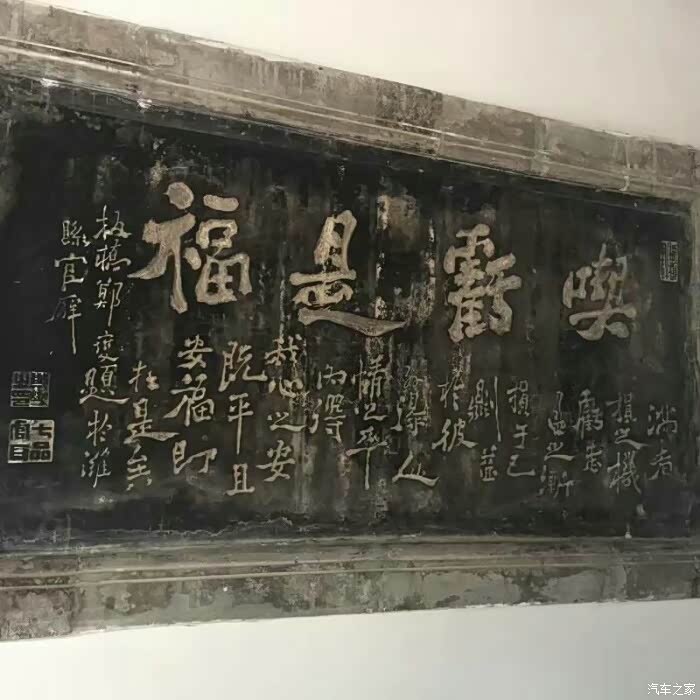 喫虧是福
滿者
損之機
虧者
盈之漸
損于己
則益
於彼
外得人
情之平
內得
我心之安
既平且
安福即
在是矣
板橋鄭燮題於濰
縣官
七品官耳
汽车之家